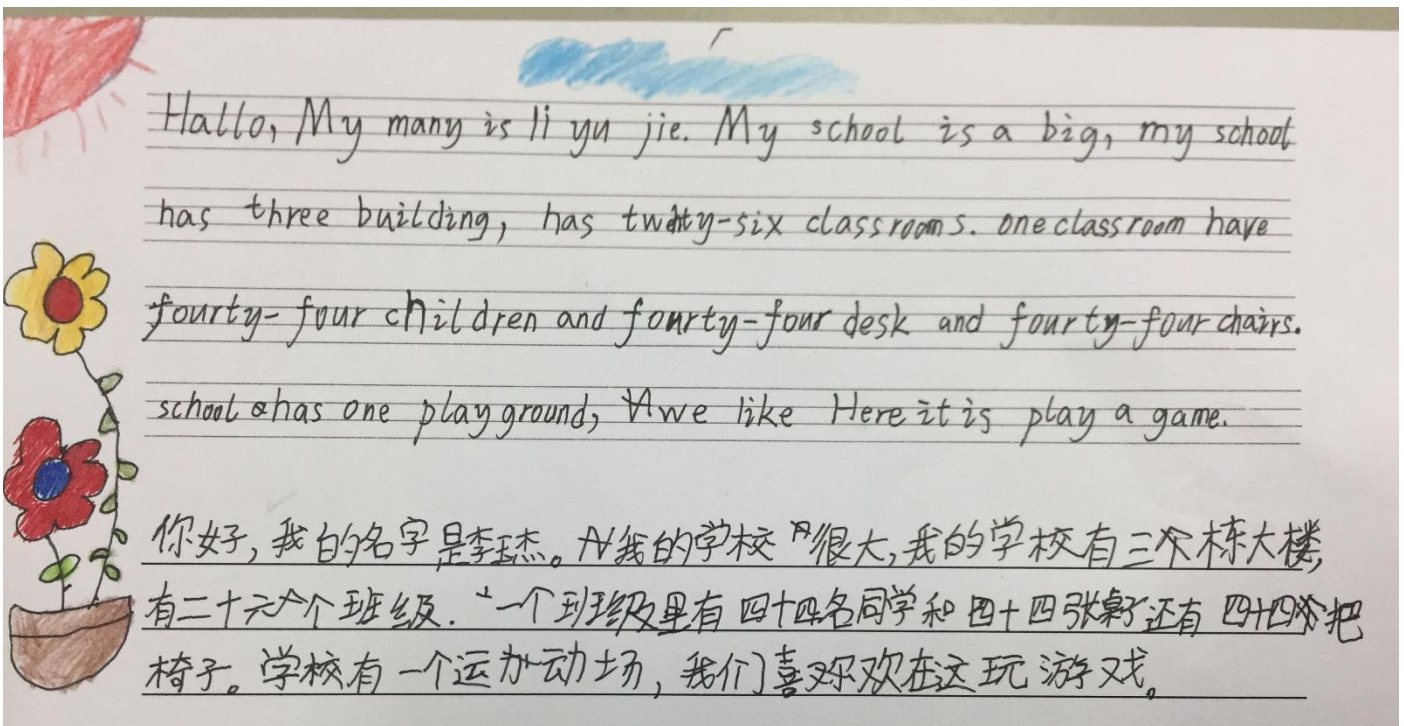 Hallo, My many is li yu jie. My school is a big, my school
has three building, has twenty-six classrooms. one classroom have
fourty-four children and fourty-four desk and fourty-four chairs.
school has one playground, we like Here it is play a game.
你好,我的名字是李玉杰。我的学校很大,我的学校有三栋大楼,
有二十六个班级.一个班级里有四十四名同学和四十四张桌子还有四十四把
椅子。学校有一个运动场,我们喜欢在这玩游戏。